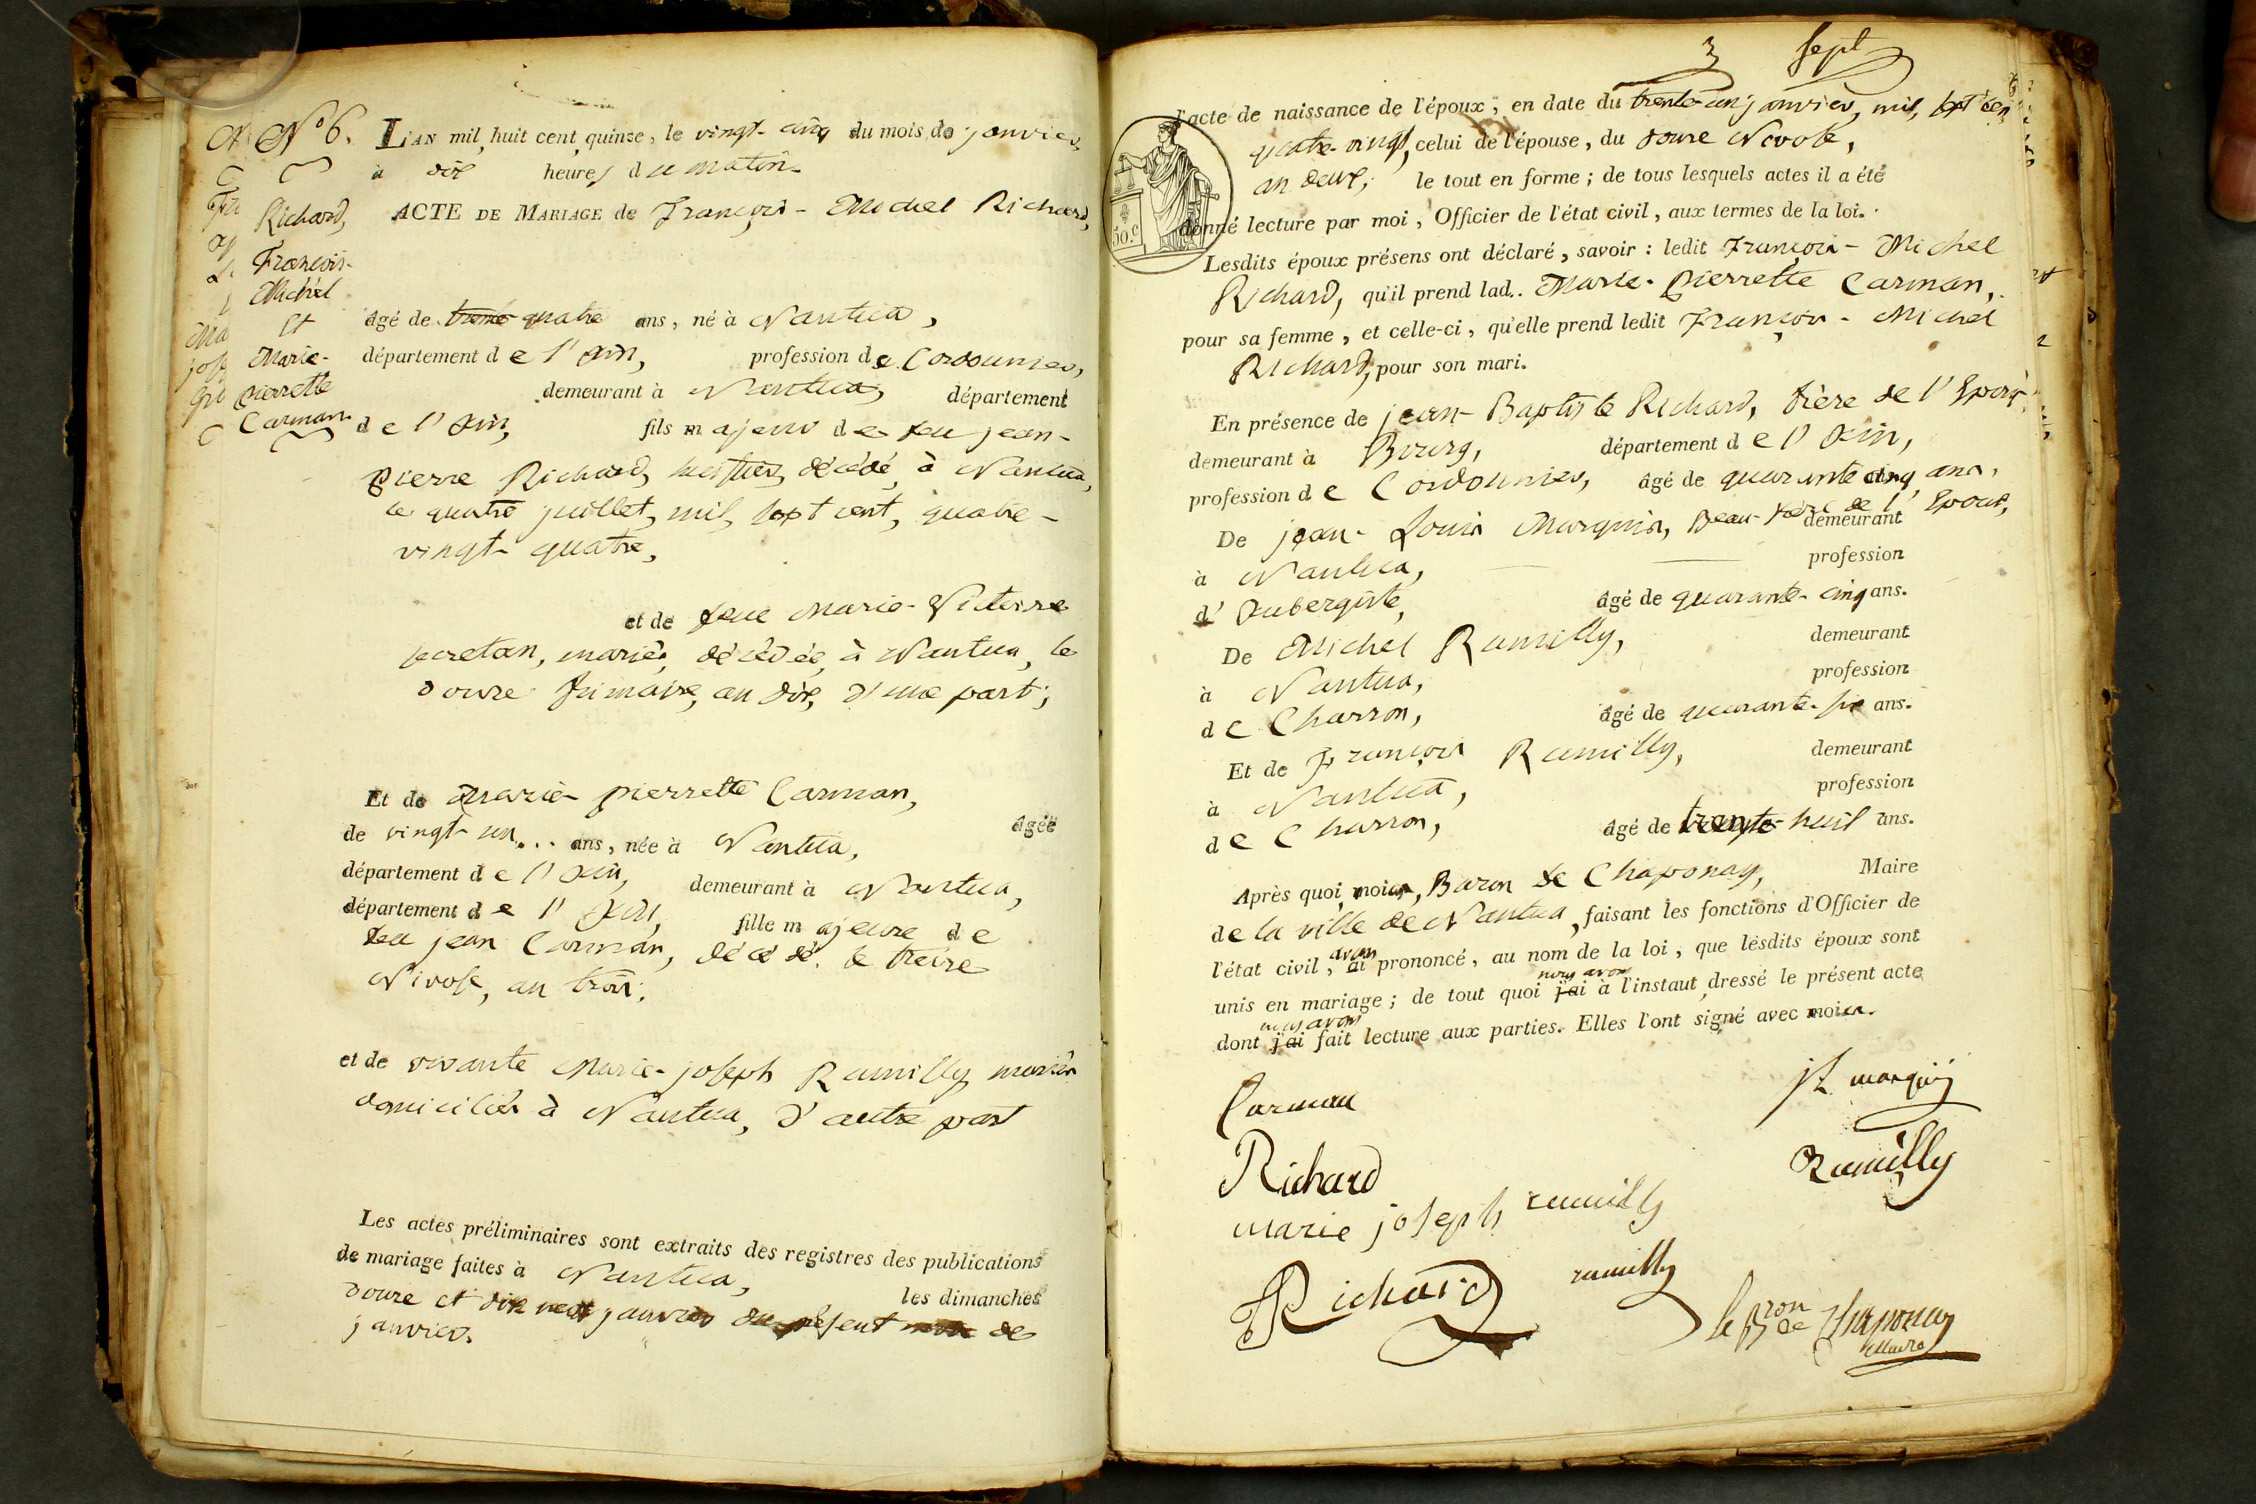 N° 6.
Richard,
François-
Michel
Et
Marie-
pierrette
Carman
L'AN mil huit cent quinze, le vingt-cinq du mois de janvier,
à dix heures du matin
ACTE DE MARIAGE de François-Michel Richard,
âgé de trente quatre ans, né à Nantua,
département de l'Ain, profession de Cordounier,
demeurant à Nantua, département
de l'Ain, fils majeur de feu jean-
pierre Richard, huissier, décédé, à Nantua,
le quatre juillet, mil, sept cent, quatre-
vingt-quatre,
et de feue Marie-Victoire
secretan, mariés, décédée, à Nantua, le
douze frimaire, an dix, d'une part;
Et de Marie-pierrette Carman,
âgée
de vingt-un... ans, née à Nantua,
département de l'Ain, demeurant à Nantua,
département de l'Ain, fille majeure de
feu jean Carman, décédé, le treize
Nivose, an trois,
et de vivante Marie-joseph Rumilly, mariés
domiciliés à Nantua, d'autre part
Les actes préliminaires sont extraits des registres des publications
de mariage faites à Nantua, les dimanches
douze et dix neuf janvier du présent mois de
janvier.
3 Sept
l'acte de naissance de l'époux, en date du trente-un janvier, mil, sept cent
quatre-vingt, celui de l'épouse, du douze Nivose,
an deux; le tout en forme; de tous lesquels actes il a été
donné lecture par moi, Officier de l'état civil, aux termes de la loi.
50.c
Lesdits époux présens ont déclaré, savoir : ledit François-Michel
Richard, qu'il prend lad.. Marie-pierrette Carman,
pour sa femme, et celle-ci, qu'elle prend ledit François-Michel
Richard, pour son mari.
En présence de jean-Baptiste Richard, frère de l'Epoux,
demeurant à Bourg, département de l'Ain,
profession de Cordounier, âgé de quarante cinq ans,
De jean-Louis Marquis, Beau-frère de l'Epoux, demeurant
à Nantua, profession
d'Aubergiste, âgé de quarante-cinq ans.
De Michel Rumilly, demeurant
à Nantua, profession
de Charron, âgé de quarante-six ans.
Et de François Rumilly, demeurant
à Nantua, profession
de Charron, âgé de trente-huit ans.
Après quoi, moi, Baron de Chaponay, Maire
de la ville de Nantua, faisant les fonctions d'Officier de
l'état civil, ai avons prononcé, au nom de la loi, que lesdits époux sont
unis en mariage; de tout quoi j'ai nous avons à l'instaut dressé le présent acte
dont j'ai nous avons fait lecture aux parties. Elles l'ont signé avec moi
Carman
jL marquis
Richard
Rumilly
marie joseph rumilly
Richard
rumilly
le Bron de Chaponay
Maire